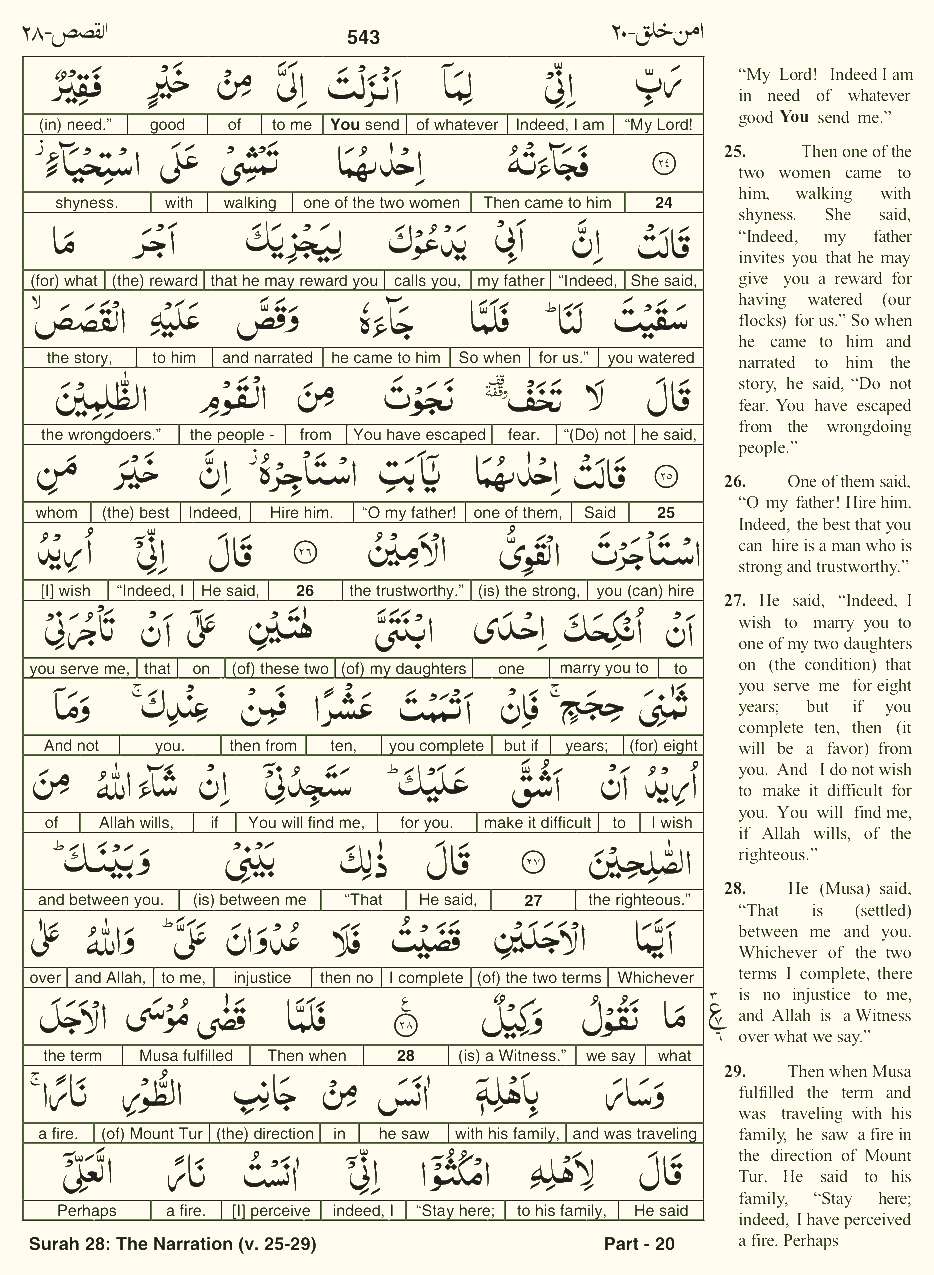 القصص-۲۸
543
امن خلق-۲۰
رَبِّ اِنِّيْ لِمَآ اَنْزَلْتَ اِلَيَّ مِنْ خَيْرٍ فَقِيْرٌ
(in) need.” good of to me You send of whatever Indeed, I am “My Lord!
۲۴ فَجَآءَتْهُ اِحْدٰىهُمَا تَمْشِيْ عَلَى اسْتِحْيَآءٍ ز
shyness. with walking one of the two women Then came to him 24
قَالَتْ اِنَّ اَبِيْ يَدْعُوْكَ لِيَجْزِيَكَ اَجْرَ مَا
(for) what (the) reward that he may reward you calls you, my father “Indeed, She said,
سَقَيْتَ لَنَا ط فَلَمَّا جَآءَهٗ وَقَصَّ عَلَيْهِ الْقَصَصَ لا
the story, to him and narrated he came to him So when for us.” you watered
قَالَ لَا تَخَفْ وقفة نَجَوْتَ مِنَ الْقَوْمِ الظّٰلِمِيْنَ
the wrongdoers.” the people - from You have escaped fear. “(Do) not he said,
۲۵ قَالَتْ اِحْدٰىهُمَا يٰٓاَبَتِ اسْتَاْجِرْهُ ز اِنَّ خَيْرَ مَنِ
whom (the) best Indeed, Hire him. “O my father! one of them, Said 25
اسْتَاْجَرْتَ الْقَوِيُّ الْاَمِيْنُ ۲۶ قَالَ اِنِّيْٓ اُرِيْدُ
[I] wish “Indeed, I He said, 26 the trustworthy.” (is) the strong, you (can) hire
اَنْ اُنْكِحَكَ اِحْدَى ابْنَتَيَّ هٰتَيْنِ عَلٰٓى اَنْ تَاْجُرَنِيْ
you serve me, that on (of) these two (of) my daughters one marry you to to
ثَمٰنِيَ حِجَجٍ ج فَاِنْ اَتْمَمْتَ عَشْرًا فَمِنْ عِنْدِكَ ج وَمَآ
And not you. then from ten, you complete but if years; (for) eight
اُرِيْدُ اَنْ اَشُقَّ عَلَيْكَ ط سَتَجِدُنِيْٓ اِنْ شَآءَ اللّٰهُ مِنَ
of Allah wills, if You will find me, for you. make it difficult to I wish
الصّٰلِحِيْنَ ۲۷ قَالَ ذٰلِكَ بَيْنِيْ وَبَيْنَكَ ط
and between you. (is) between me “That He said, 27 the righteous.”
اَيَّمَا الْاَجَلَيْنِ قَضَيْتُ فَلَا عُدْوَانَ عَلَيَّ ط وَاللّٰهُ عَلٰى
over and Allah, to me, injustice then no I complete (of) the two terms Whichever
مَا نَقُوْلُ وَكِيْلٌ ۲۸ ع فَلَمَّا قَضٰى مُوْسَى الْاَجَلَ
the term Musa fulfilled Then when 28 (is) a Witness.” we say what
وَسَارَ بِاَهْلِهٖٓ اٰنَسَ مِنْ جَانِبِ الطُّوْرِ نَارًا ج
a fire. (of) Mount Tur (the) direction in he saw with his family, and was traveling
قَالَ لِاَهْلِهِ امْكُثُوْٓا اِنِّيْٓ اٰنَسْتُ نَارًا لَّعَلِّيْٓ
Perhaps a fire. [I] perceive indeed, I “Stay here; to his family, He said
Surah 28: The Narration (v. 25-29)
Part - 20
“My Lord! Indeed I am
in need of whatever
good You send me.”
25. Then one of the
two women came to
him, walking with
shyness. She said,
“Indeed, my father
invites you that he may
give you a reward for
having watered (our
flocks) for us.” So when
he came to him and
narrated to him the
story, he said, “Do not
fear. You have escaped
from the wrongdoing
people.”
26. One of them said,
“O my father! Hire him.
Indeed, the best that you
can hire is a man who is
strong and trustworthy.”
27. He said, “Indeed, I
wish to marry you to
one of my two daughters
on (the condition) that
you serve me for eight
years; but if you
complete ten, then (it
will be a favor) from
you. And I do not wish
to make it difficult for
you. You will find me,
if Allah wills, of the
righteous.”
28. He (Musa) said,
“That is (settled)
between me and you.
Whichever of the two
terms I complete, there
is no injustice to me,
and Allah is a Witness
over what we say.”
29. Then when Musa
fulfilled the term and
was traveling with his
family, he saw a fire in
the direction of Mount
Tur. He said to his
family, “Stay here;
indeed, I have perceived
a fire. Perhaps